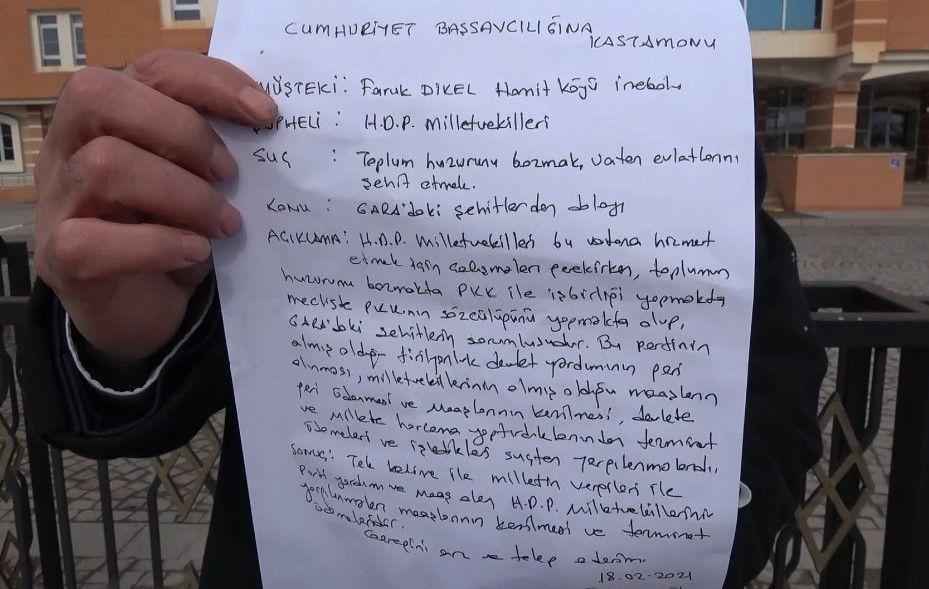 CUMHURİYET BAŞSAVCILIĞINA
KASTAMONU
MÜŞTEKİ : Faruk DİKEL Hamit Köyü inebolu
ŞÜPHELİ : H.D.P. Milletvekilleri
SUÇ : Toplum huzurunu bozmak, vatan evlatlarını
şehit etmek.
KONU : GARA'daki şehitlerden dolayı
AÇIKLAMA : H.D.P. Milletvekilleri bu vatana hizmet
etmek için çalışmaları gerekirken, toplumun
huzurunu bozmakta PKK ile işbirliği yapmakta
mecliste PKK'nın sözcülüğünü yapmakta olup,
GARA'daki şehitlerin sorumlusudur. Bu partinin
almış olduğu trilyonluk devlet yardımının geri
alınması, milletvekillerinin almış olduğu maaşların
geri ödenmesi ve maaşlarının kesilmesi, devlete
ve millete harcama yaptırdıklarından terminat
ödemeleri ve işledikleri suçtan yargılanmalarıdır.
SONUÇ : Tek kelime ile milletin vergileri ile
Parti yardımı ve maaş alan H.D.P. Milletvekillerinin
yargılanmaları maaşlarının kesilmesi ve terminat
ödemeleridir.
Gereğini arz ve talep ederim
18-02-2021